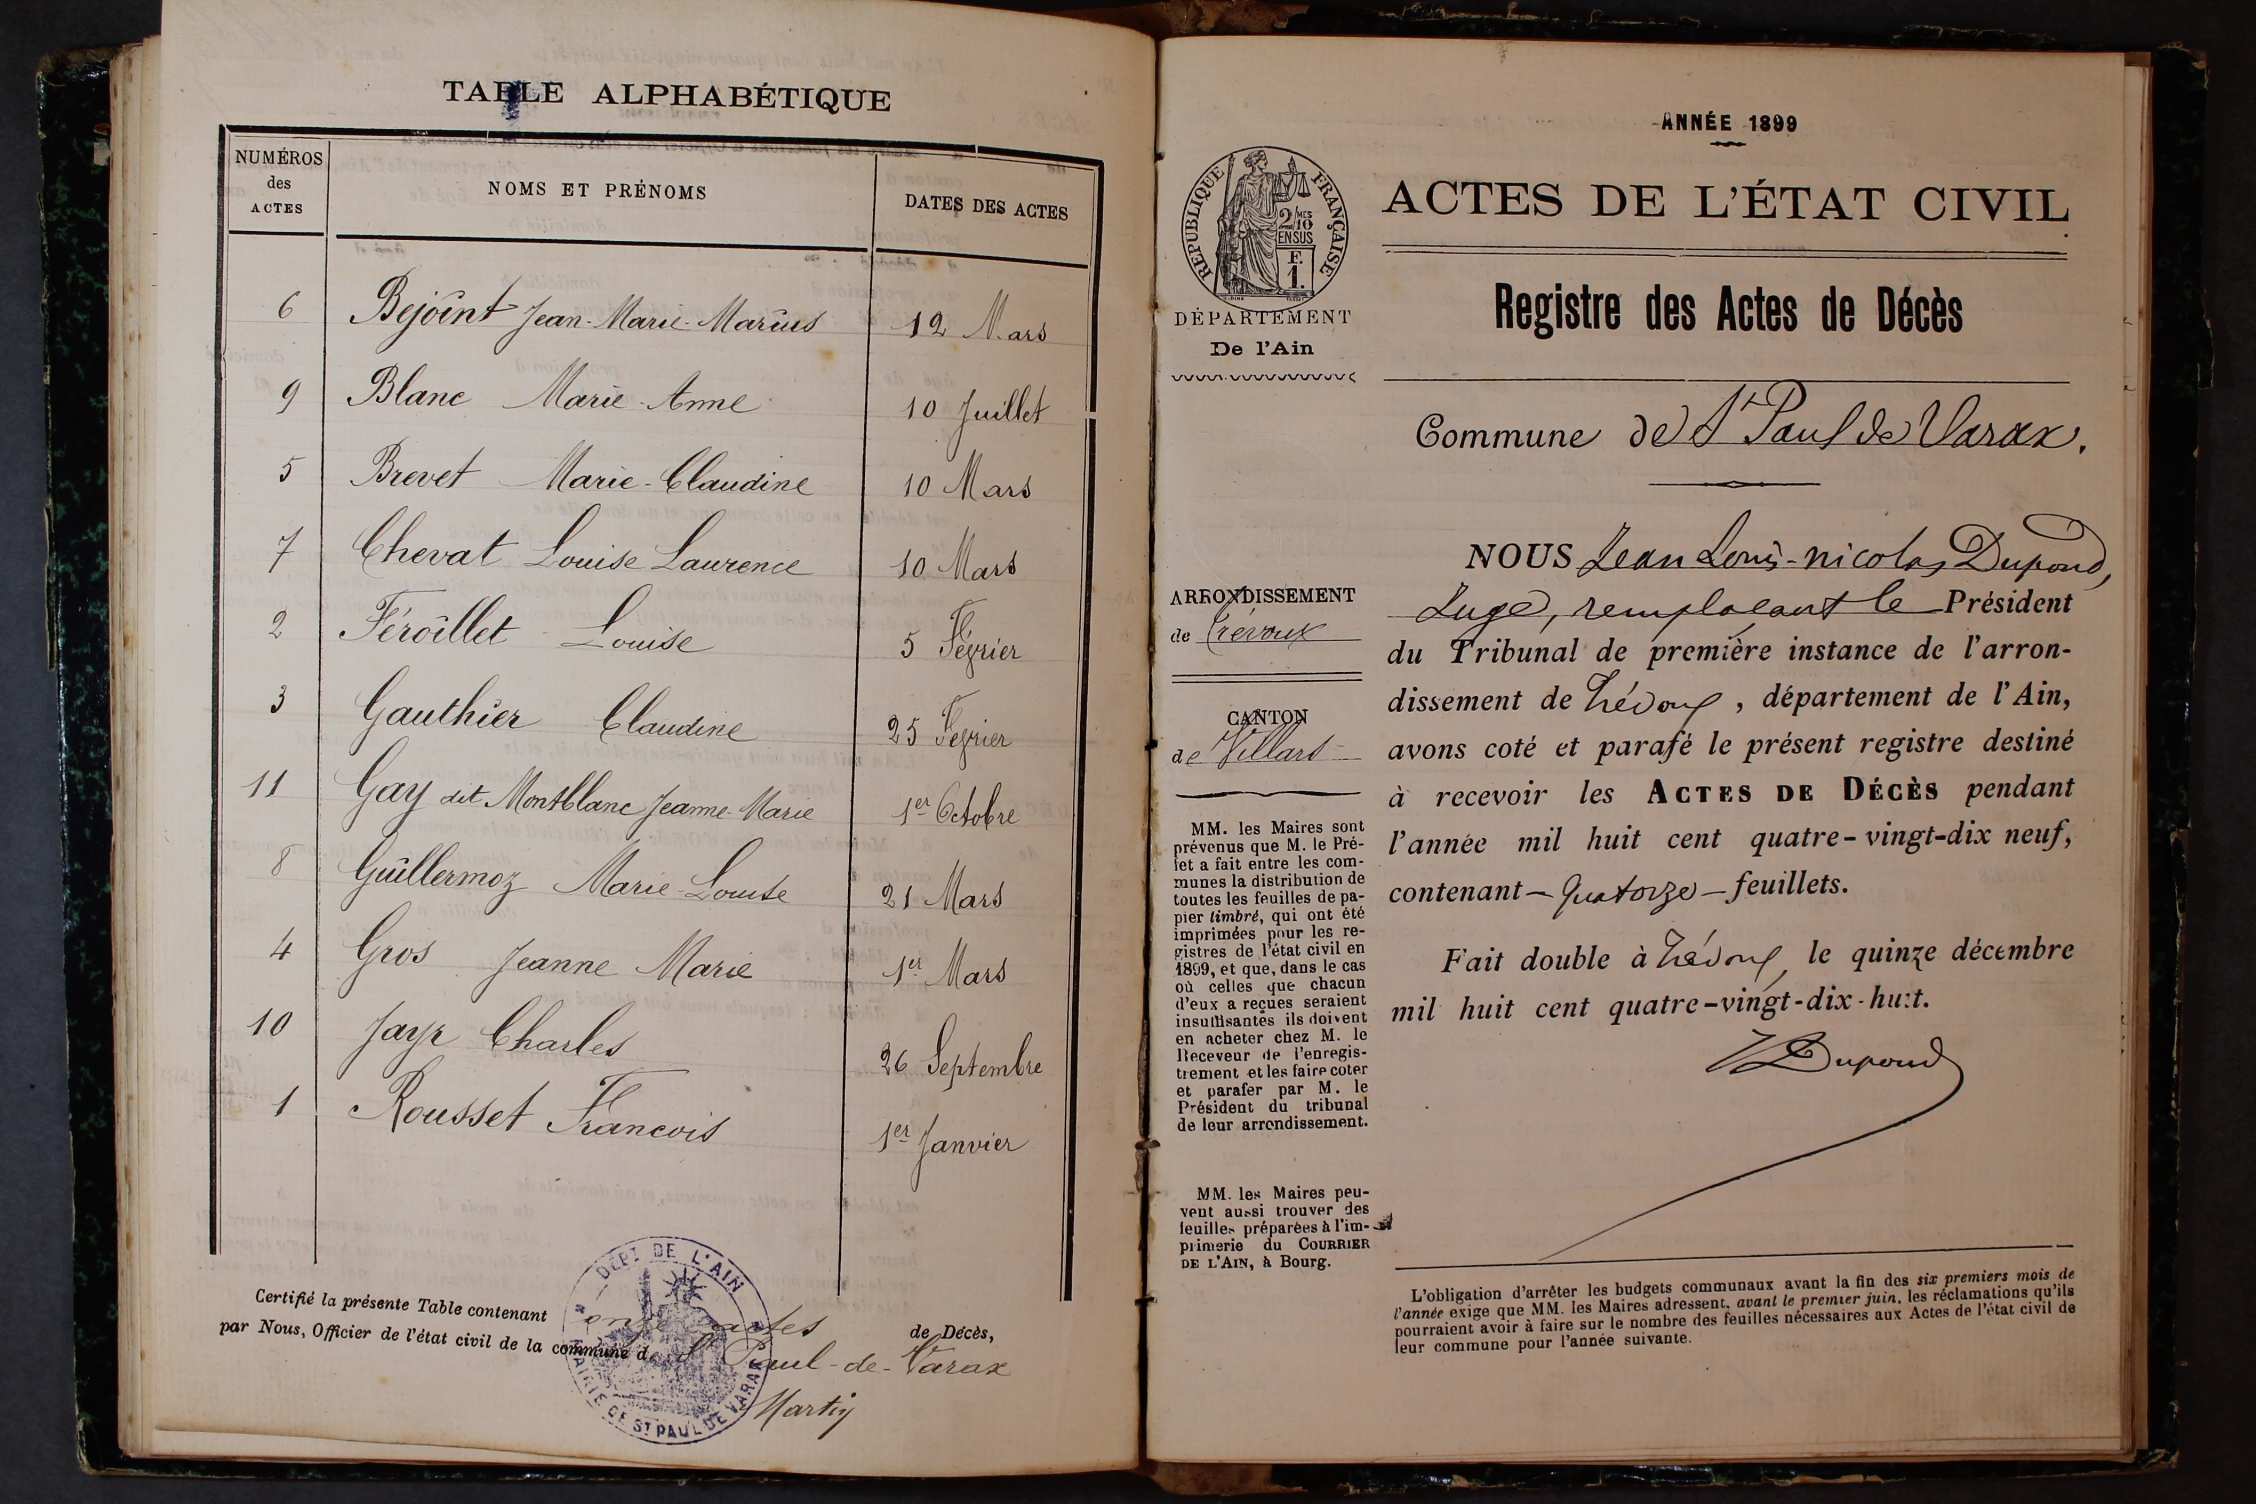 TABLE ALPHABÉTIQUE
NUMÉROS des ACTES
NOMS ET PRÉNOMS
DATES DES ACTES
6 Bejoint Jean-Marie-Marius 12 Mars
9 Blanc Marie-Anne 10 Juillet
5 Brevet Marie-Claudine 10 Mars
7 Chevat Louise Laurence 10 Mars
2 Féroillet Louise 5 Février
3 Gauthier Claudine 25 Février
11 Gay dit Montblanc Jeanne-Marie 1er Octobre
8 Guillermoz Marie-Louise 21 Mars
4 Gros Jeanne Marie 1er Mars
10 Jayr Charles 26 Septembre
1 Rousset Francois 1er Janvier
Certifié la présente Table contenant onze actes de Décès,
par Nous, Officier de l'état civil de la commune de St Paul-de-Varax
DÉPT DE L'AIN
MAIRIE DE ST PAUL DE VARAX
ANNÉE 1899
RÉPUBLIQUE FRANÇAISE
2/10 MES
EN SUS
F. 1.
DÉPARTEMENT
De l'Ain
ACTES DE L'ÉTAT CIVIL
Registre des Actes de Décès
Commune de St Paul de Varax.
ARRONDISSEMENT
de Trévoux
CANTON
de Villars
MM. les Maires sont
prévenus que M. le Pré-
fet a fait entre les com-
munes la distribution de
toutes les feuilles de pa-
pier timbré, qui ont été
imprimées pour les re-
gistres de l'état civil en
1899, et que, dans le cas
où celles que chacun
d'eux a reçues seraient
insuffisantes ils doivent
en acheter chez M. le
Receveur de l'enregis-
trement et les faire coter
et parafer par M. le
Président du tribunal
de leur arrondissement.
MM. les Maires peu-
vent aussi trouver des
feuilles préparées à l'im-
primerie du COURRIER
DE L'AIN, à Bourg.
NOUS Jean Louis-nicolas Dupond,
Juge, remplaçant le Président
du Tribunal de première instance de l'arron-
dissement de Trévoux, département de l'Ain,
avons coté et parafé le présent registre destiné
à recevoir les ACTES DE DÉCÈS pendant
l'année mil huit cent quatre-vingt-dix neuf,
contenant — quatorze — feuillets.
Fait double à Trévoux, le quinze décembre
mil huit cent quatre-vingt-dix-huit.
Dupond
L'obligation d'arrêter les budgets communaux avant la fin des six premiers mois de
l'année exige que MM. les Maires adressent, avant le premier juin, les réclamations qu'ils
pourraient avoir à faire sur le nombre des feuilles nécessaires aux Actes de l'état civil de
leur commune pour l'année suivante.